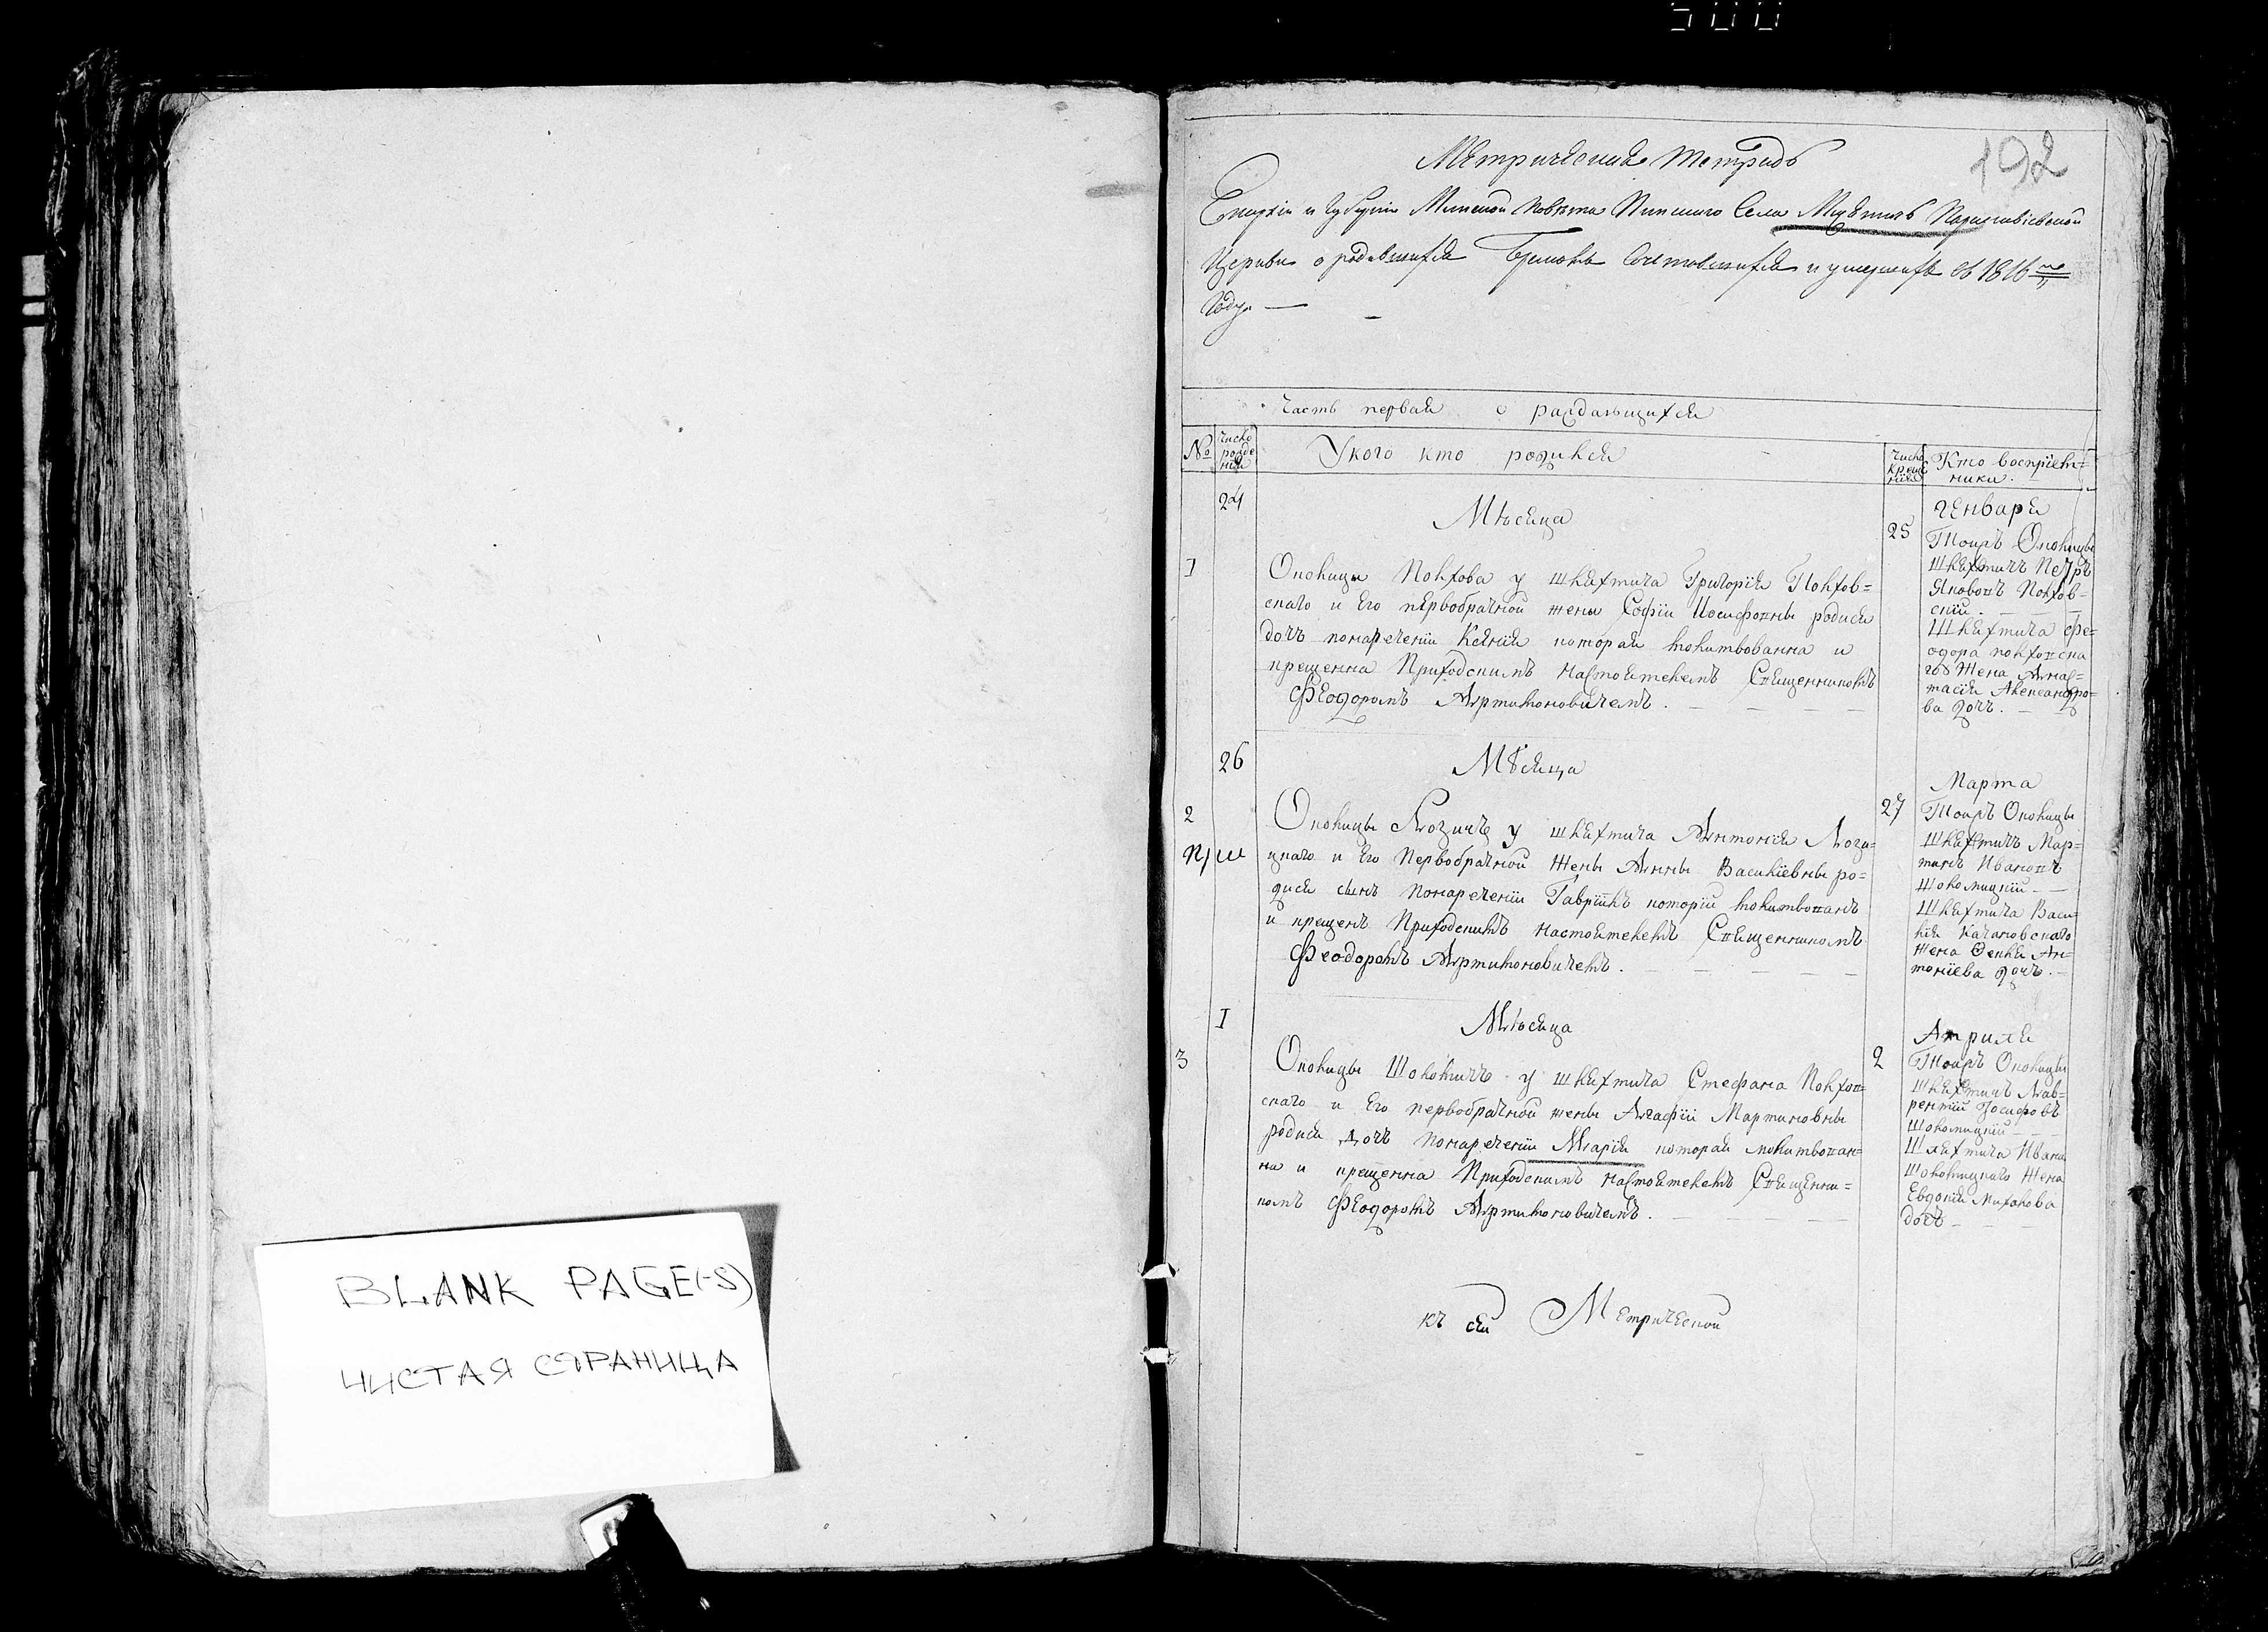 500
BLANK PAGE(-S)
ЧИСТАЯ СТРАНИЦА
192
Метрическая тетрадь
Епархіи и Губерніи Минской Повѣта Пинскаго Села Парасковіевской
Церкви о родившихся Бракомъ Сочетовшихся и умершихъ съ 1816го
Году —
Часть первая о раждающихся
№
Число рожде нія
У кого кто родился
Число креще нія
Кто воспріем=
ники.
24
Мѣсяца
Генваря
1
Околицы Полхова у шляхтича Григорія Полхов=
скаго и Его первобрачной жены Софіи Иосифовны родися
дочъ нонаречении Ксенія которая молитвованна и
крещенна Приходскимъ настоятелемъ Священникомъ
Феодоромъ Артимоновичемъ. — — —
25
Тоижъ Околицы
шляхтичъ Петръ
Якововъ Полхов=
скій. — —
Шляхтича Фе=
одора полховска
го Жена Анас=
тасія Александро=
ва дочъ. —
26
Мѣсяца
Марта
2
при
Околицы Лозичъ у шляхтича Антонія Лози=
цкаго и Его Первобрачной Жены Анны Василіевны ро=
дися сынъ нонаречении Гавріилъ которій молитвованъ
и крещенъ Приходскимъ настоятелемъ Священникомъ
Феодоромъ Артимоновичемъ. — — — —
27
Тоижъ Околицы
Шляхтичъ Мар=
тинъ Ивановъ
Шоломицкій — —
Шляхтича Васи=
лія Качановскаго
Жена Ан=
тоніева дочъ. —
1
Мѣсяца
Априля
3
Околицы Шоломичъ у шляхтича Стефана Полхов=
скаго и Его первобрачной жены Агафіи Мартиновны
родися дочъ нонаречении Марія которая молитвован=
на и крещенна Приходскимъ настоятелемъ Священни=
комъ Феодоромъ Артимоновичемъ. — — — —
2
Тоижъ Околицы
Шляхтичъ Лав=
рентій Иосифовъ
Шоломицкій — —
Шляхтича Ивана
Шоломицкаго Жена
Евдокія Михалова
дочъ — —
къ сей Метрической